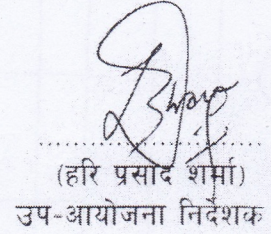 ....................................
(हरि प्रसाद शर्मा)
उप-आयोजना निर्देशक